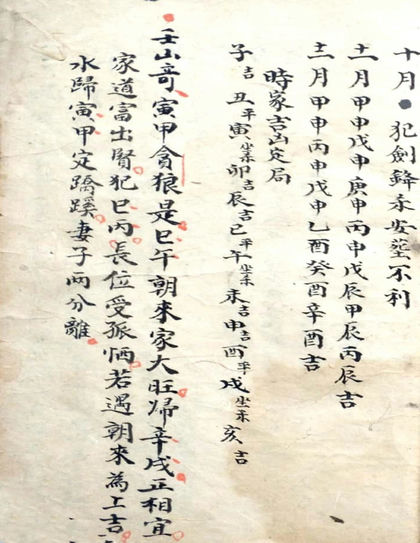 十月 犯劍鋒未安塟不利
十一月甲申戊申庚申丙申戊辰甲辰丙辰吉
十二月甲申丙申戊申乙酉癸酉辛酉吉
時家吉凶定局
子吉丑平寅坐未卯吉辰吉巳平午坐未未吉申吉酉平戌坐未亥吉
壬山哥寅甲貪狼是巳午朝來家大旺㷌辛戌正相宜
家道富出賢犯巳丙長位受孤恓若遇朝來為上吉
水歸寅甲定蹺蹊妻子兩分離